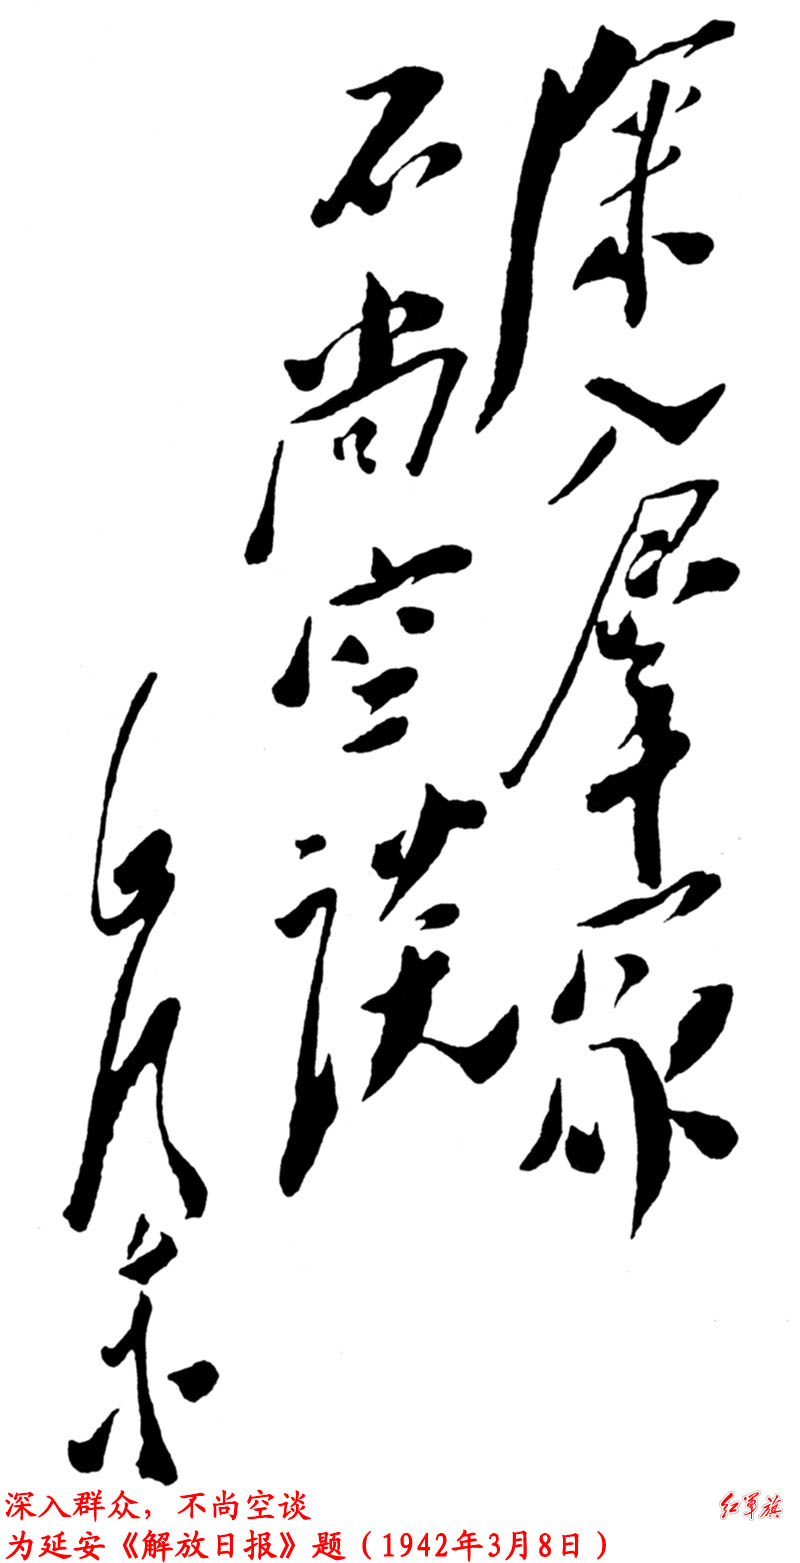 深入羣眾
不尚空談
毛澤東
深入群众，不尚空谈
为延安《解放日报》题（1942年3月8日）
红军旗